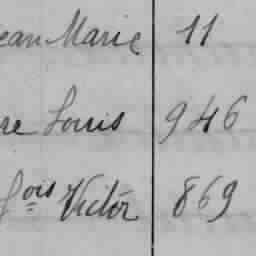 ean Marie 11
re Louis 946
fois Victor 869